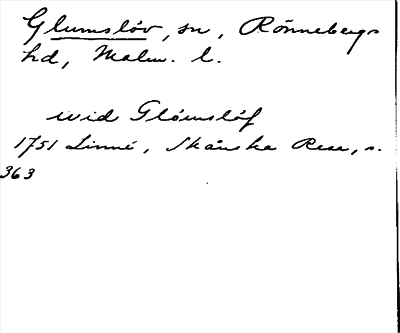 Glumslöv, sn, Rönnebergs
hd, Malm. l.
wid Glömslöf
1751 Linné, Skånska Resa, s.
363